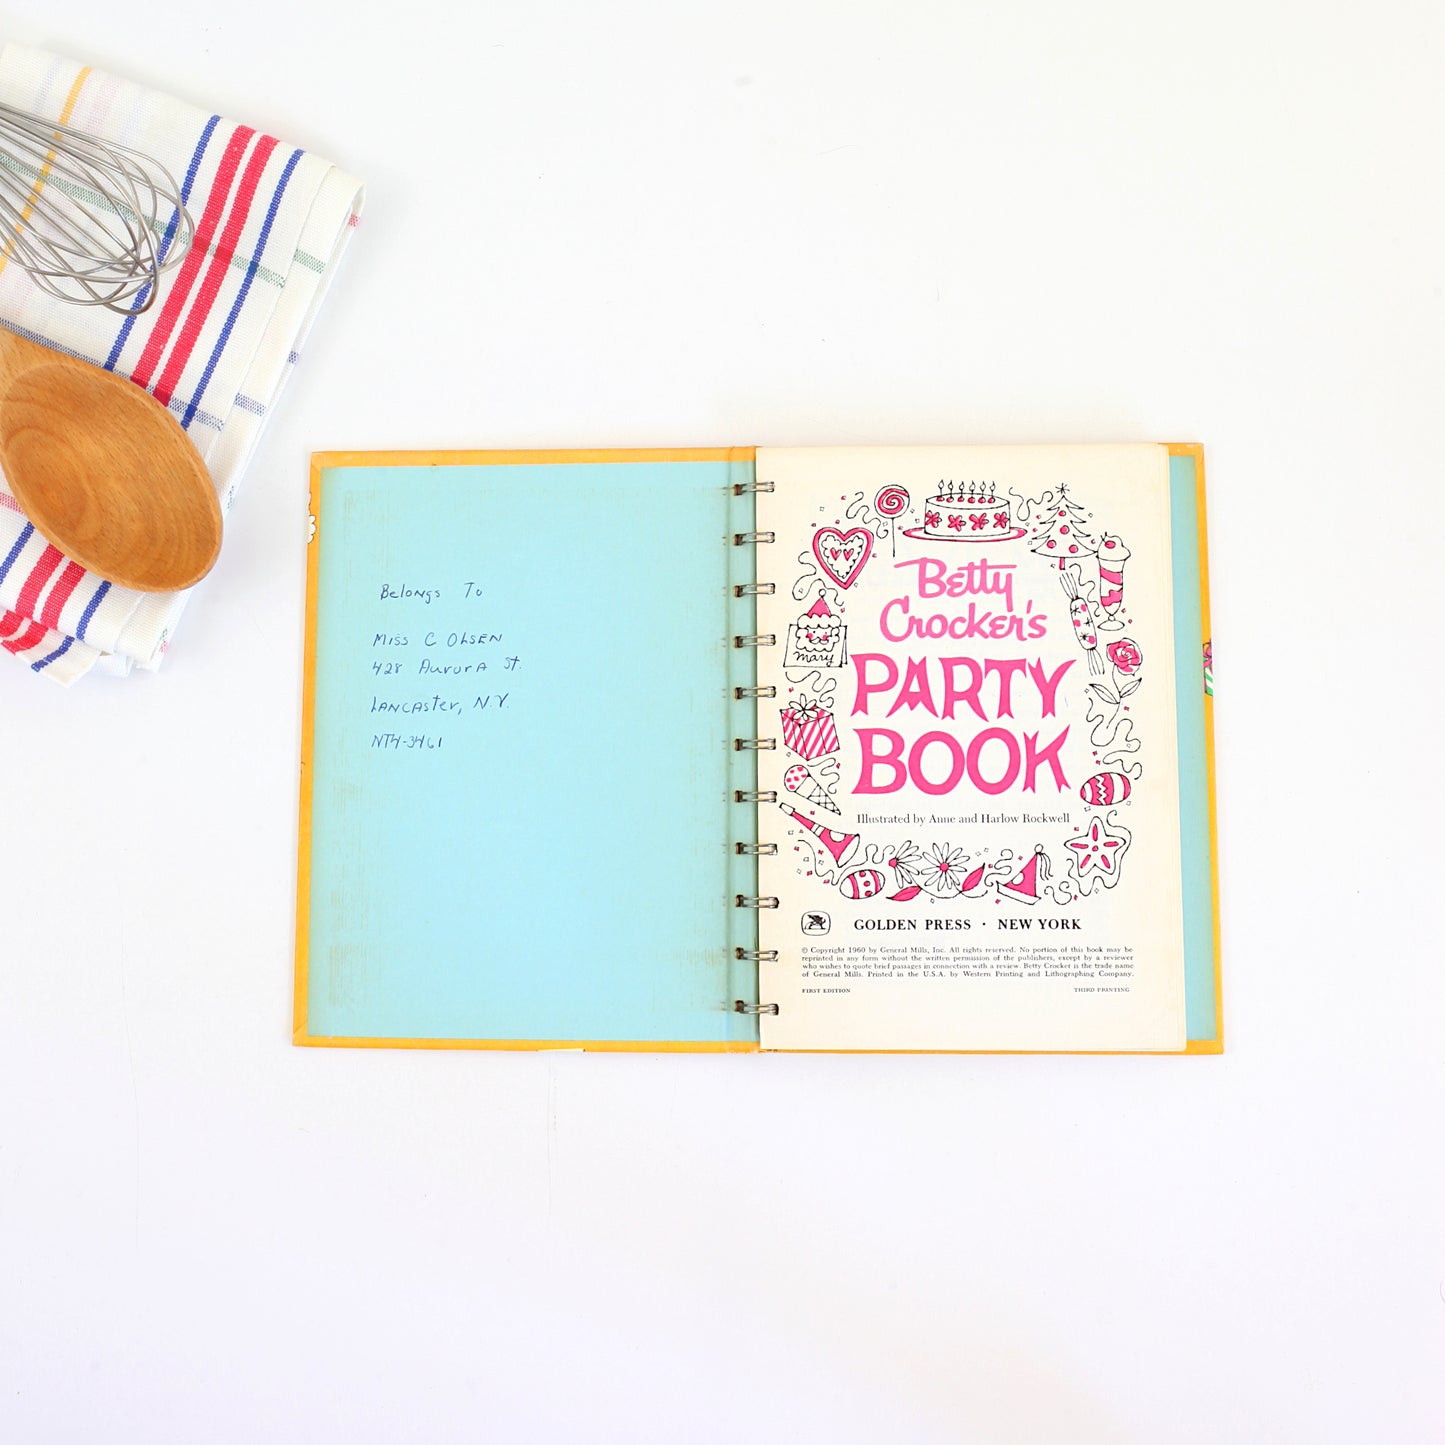 Belongs To
Miss C Olsen
428 Aurora St.
Lancaster, N.Y.
NT4-3461
Betty
Crocker's
PARTY
BOOK
mary
Illustrated by Anne and Harlow Rockwell
GOLDEN PRESS • NEW YORK
© Copyright 1960 by General Mills, Inc. All rights reserved. No portion of this book may be
reprinted in any form without the written permission of the publishers, except by a reviewer
who wishes to quote brief passages in connection with a review. Betty Crocker is the trade name
of General Mills. Printed in the U.S.A. by Western Printing and Lithographing Company.
FIRST EDITION THIRD PRINTING